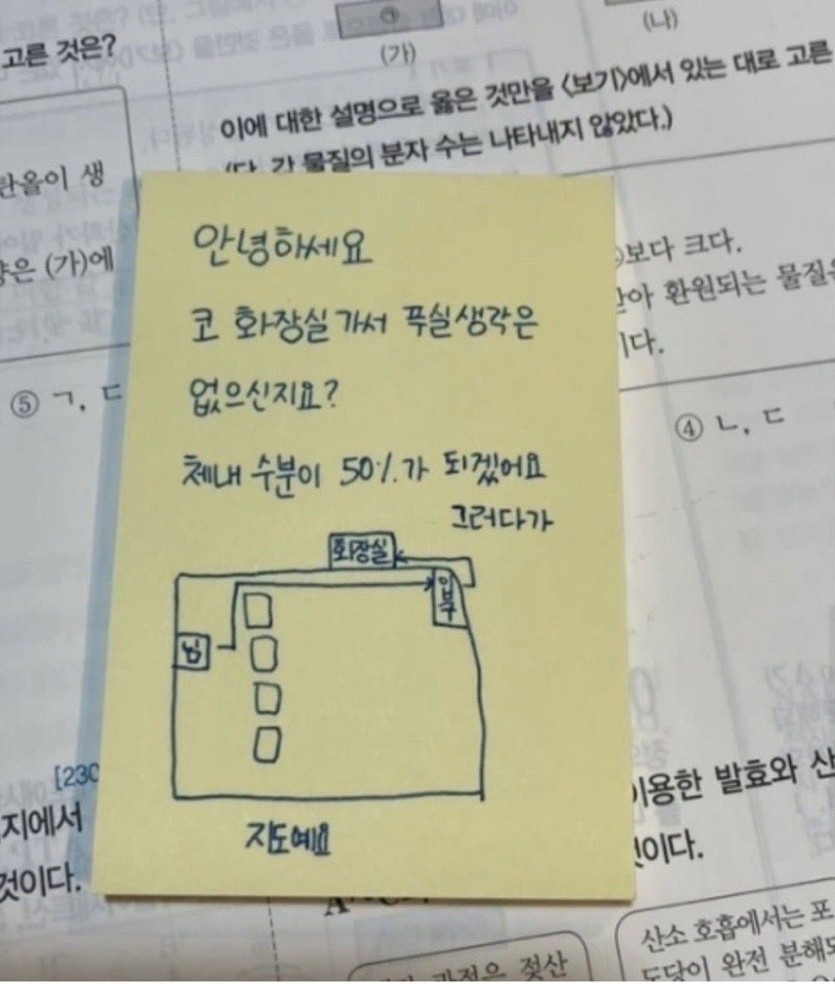 고른 것은?
(가)
(나)
이에 대한 설명으로 옳은 것만을 <보기>에서 있는 대로 고른
(단, 각 물질의 분자 수는 나타내지 않았다.)
탄올이 생
은 (가)에
보다 크다.
받아 환원되는 물질은
이다.
⑤ ㄱ, ㄷ
④ ㄴ, ㄷ
안녕하세요
코 화장실가서 푸실생각은
없으신지요?
체내 수분이 50%가 되겠어요
그러다가
화장실
입구
님
지도예요
[230
지에서
것이다.
이용한 발효와 산
것이다.
과정은 젖산
산소 호흡에서는 포
도당이 완전 분해되